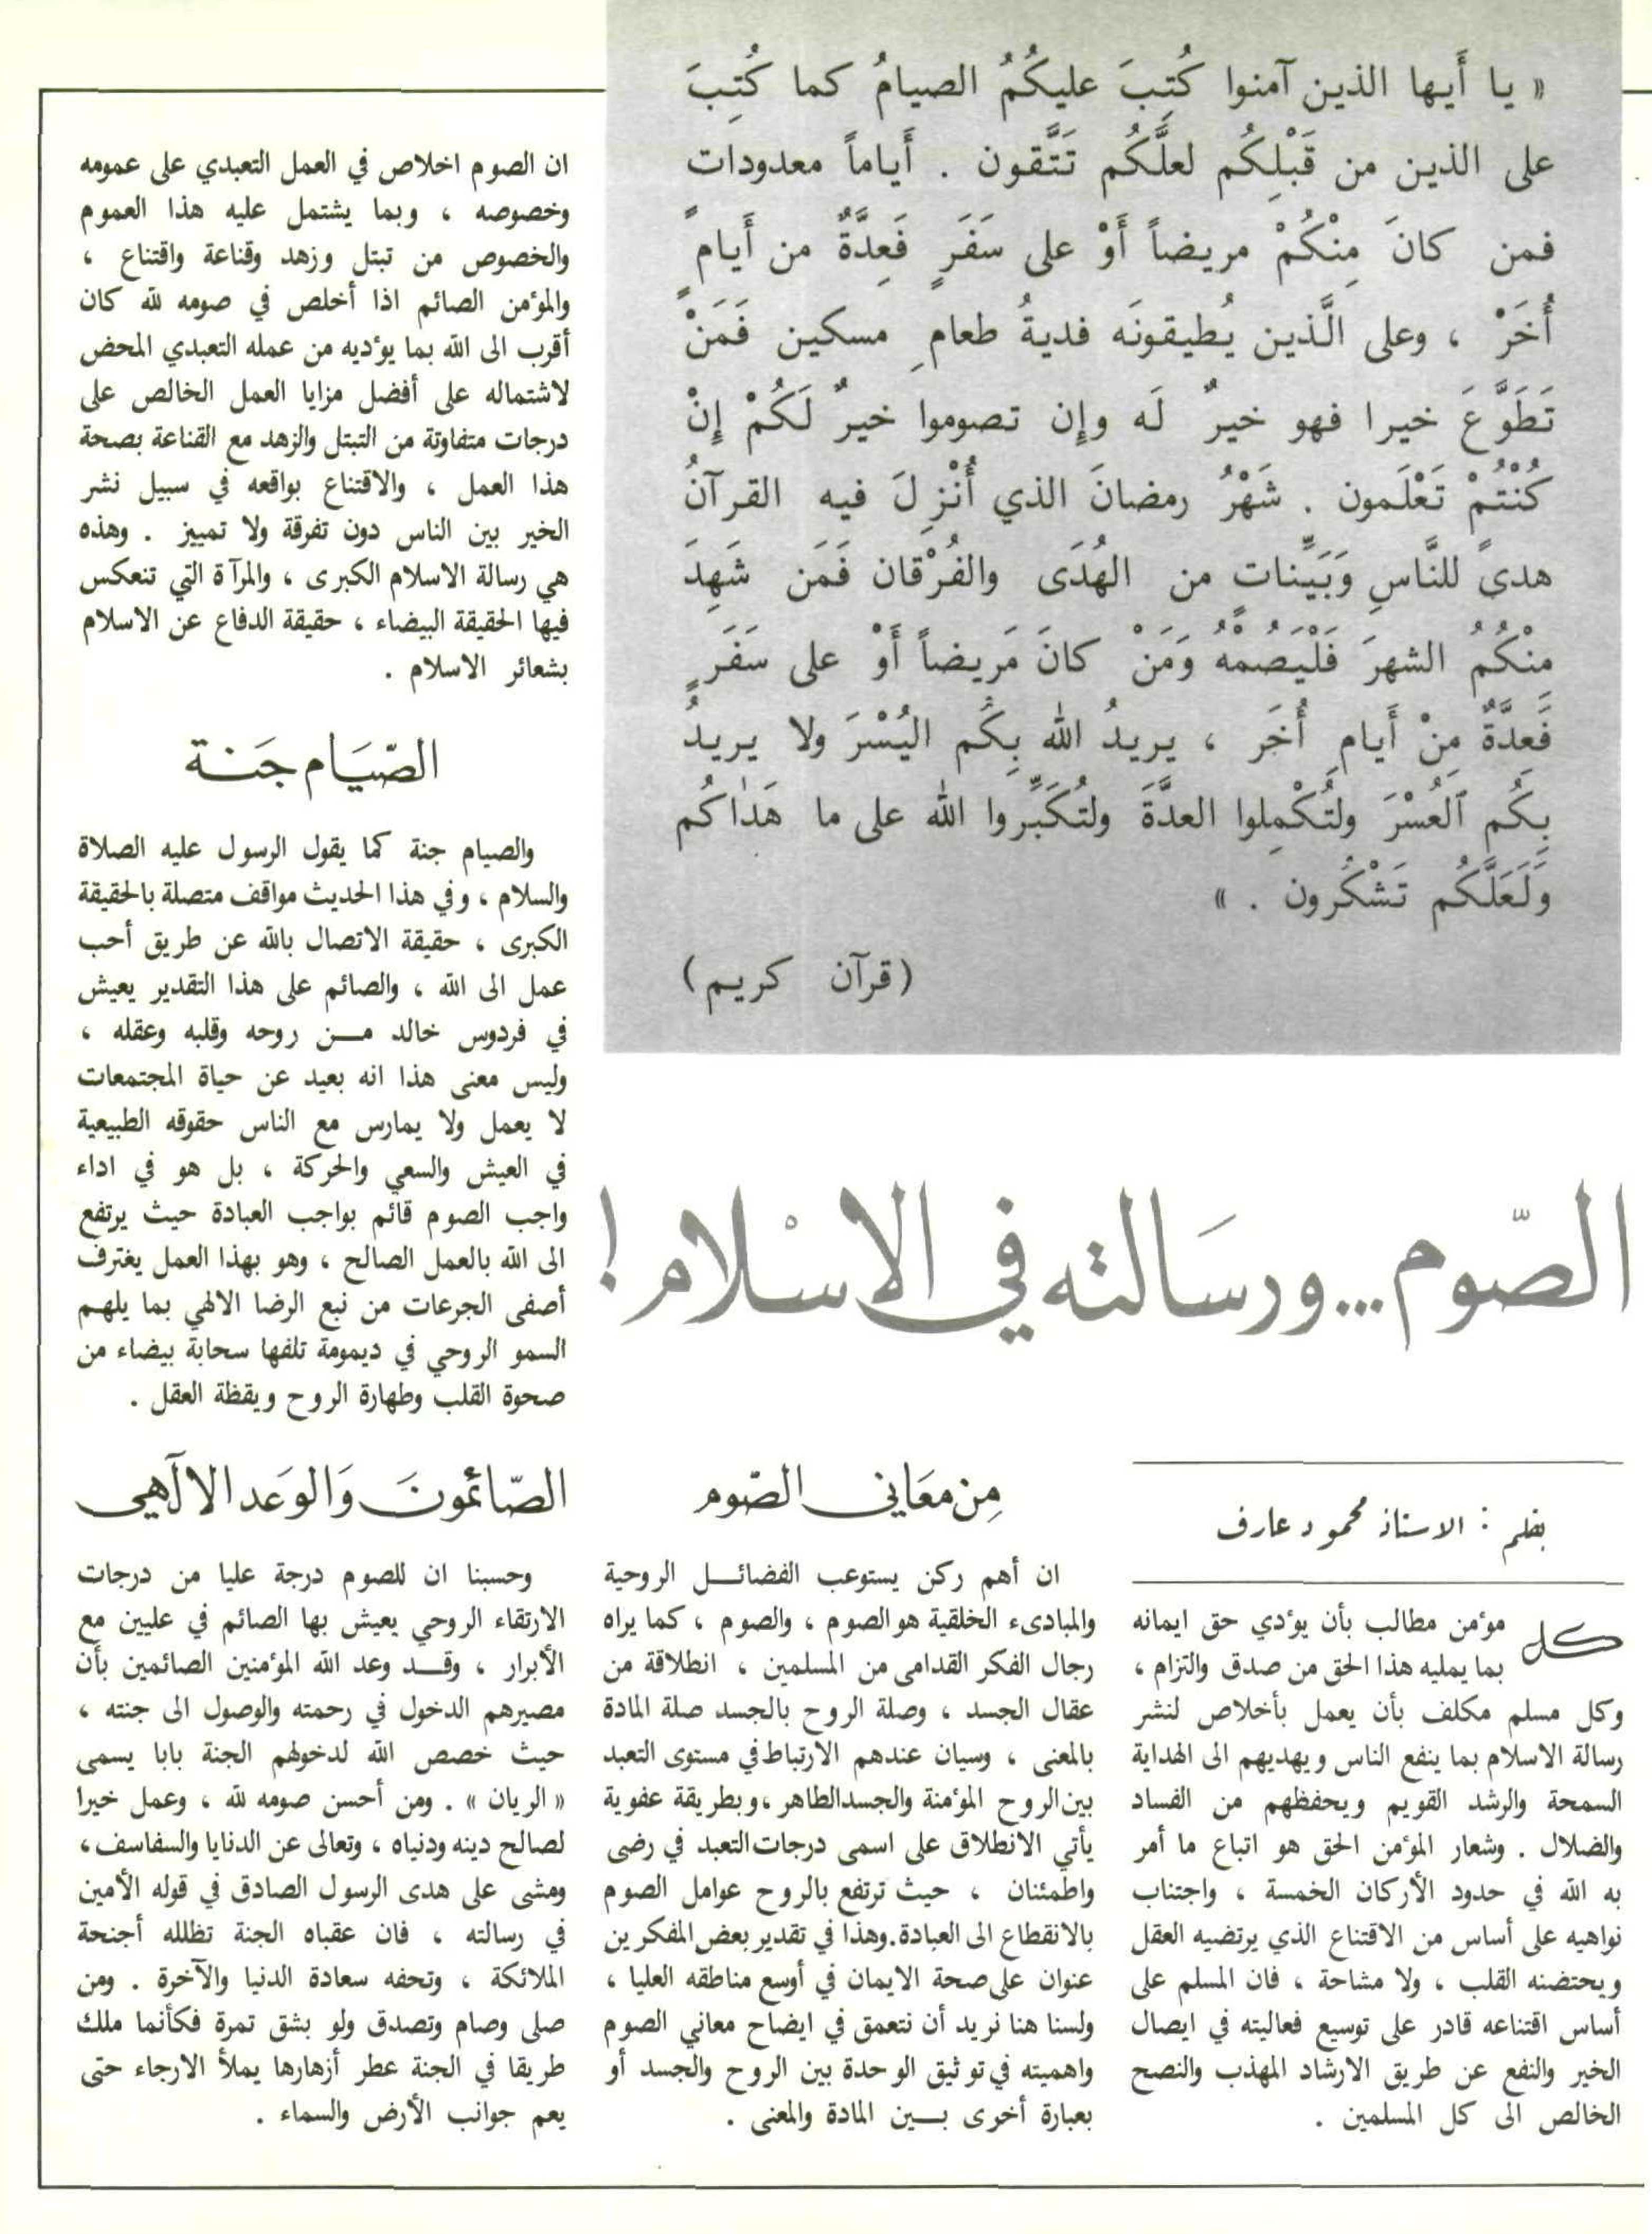 « يا أَيها الذين آمنوا كُتِبَ عليكُمُ الصيامُ كما كُتِبَ
على الذين من قَبْلِكُم لعلَّكُم تَتَّقون . أَياماً معدودات
فمن كانَ مِنْكُمْ مريضاً أَوْ على سَفَرٍ فَعِدَّةٌ من أَيامٍ
أُخَرْ ، وعلى الَّذين يُطيقونَه فديةُ طعامِ مسكين فَمَنْ
تَطَوَّعَ خيرا فهو خيرٌ لَه وإِن تصوموا خيرٌ لَكُمْ إِنْ
كُنْتُمْ تَعْلَمون . شَهْرُ رمضانَ الذي أُنْزِلَ فيه القرآنُ
هدىً للنَّاسِ وَبَيِّناتٍ من الهُدَى والفُرْقان فَمَن شَهِدَ
مِنْكُمُ الشهرَ فَلْيَصُمْهُ وَمَنْ كانَ مَريضاً أَوْ على سَفَرٍ
فَعِدَّةٌ مِنْ أَيامِ أُخَر ، يريدُ الله بِكُم اليُسْرَ ولا يريدُ
بِكُم ٱلعُسْرَ ولتُكْمِلوا العدَّةَ ولتُكَبِّروا الله على ما هَدٰاكُم
وَلَعَلَّكُم تَشْكُرون . »
(قرآن كريم)
الصّوم ... ورسَالته في الاسْلام !
بقلم : الاستاذ محمود عارف
كل مؤمن مطالب بأن يؤدي حق ايمانه
بما يمليه هذا الحق من صدق والتزام ،
وكل مسلم مكلف بأن يعمل بأخلاص لنشر
رسالة الاسلام بما ينفع الناس ويهديهم الى الهداية
السمحة والرشد القويم ويحفظهم من الفساد
والضلال . وشعار المؤمن الحق هو اتباع ما أمر
به الله في حدود الأركان الخمسة ، واجتناب
نواهيه على أساس من الاقتناع الذي يرتضيه العقل
ويحتضنه القلب ، ولا مشاحة ، فان المسلم على
أساس اقتناعه قادر على توسيع فعاليته في ايصال
الخير والنفع عن طريق الارشاد المهذب والنصح
الخالص الى كل المسلمين .
مِن معَاني الصّوم
ان أهم ركن يستوعب الفضائـــل الروحية
والمبادىء الخلقية هو الصوم ، والصوم ، كما يراه
رجال الفكر القدامى من المسلمين ، انطلاقة من
عقال الجسد ، وصلة الروح بالجسد صلة المادة
بالمعنى ، وسيان عندهم الارتباط في مستوى التعبد
بين الروح المؤمنة والجسد الطاهر ، وبطريقة عفوية
يأتي الانطلاق على اسمى درجات التعبد في رضى
واطمئنان ، حيث ترتفع بالروح عوامل الصوم
بالانقطاع الى العبادة. وهذا في تقدير بعض المفكرين
عنوان على صحة الايمان في أوسع مناطقه العليا ،
ولسنا هنا نريد أن نتعمق في ايضاح معاني الصوم
واهميته في توثيق الوحدة بين الروح والجسد أو
بعبارة أخرى بـــين المادة والمعنى .
ان الصوم اخلاص في العمل التعبدي على عمومه
وخصوصه ، وبما يشتمل عليه هذا العموم
والخصوص من تبتل وزهد وقناعة واقتناع ،
والمؤمن الصائم اذا أخلص في صومه لله كان
أقرب الى الله بما يؤديه من عمله التعبدي المحض
لاشتماله على أفضل مزايا العمل الخالص على
درجات متفاوتة من التبتل والزهد مع القناعة بصحة
هذا العمل ، والاقتناع بواقعه في سبيل نشر
الخير بين الناس دون تفرقة ولا تمييز . وهذه
هي رسالة الاسلام الكبرى ، والمرآة التي تنعكس
فيها الحقيقة البيضاء ، حقيقة الدفاع عن الاسلام
بشعائر الاسلام .
الصّيَام جَنـة
والصيام جنة كما يقول الرسول عليه الصلاة
والسلام ، وفي هذا الحديث مواقف متصلة بالحقيقة
الكبرى ، حقيقة الاتصال بالله عن طريق أحب
عمل الى الله ، والصائم على هذا التقدير يعيش
في فردوس خالد مـــن روحه وقلبه وعقله ،
وليس معنى هذا انه بعيد عن حياة المجتمعات
لا يعمل ولا يمارس مع الناس حقوقه الطبيعية
في العيش والسعي والحركة ، بل هو في اداء
واجب الصوم قائم بواجب العبادة حيث يرتفع
الى الله بالعمل الصالح ، وهو بهذا العمل يغترف
أصفى الجرعات من نبع الرضا الالهي بما يلهم
السمو الروحي في ديمومة تلفها سحابة بيضاء من
صحوة القلب وطهارة الروح ويقظة العقل .
الصّائمونَ وَالوَعد الالآهي
وحسبنا ان للصوم درجة عليا من درجات
الارتقاء الروحي يعيش بها الصائم في عليين مع
الأبرار ، وقـــد وعد الله المؤمنين الصائمين بأن
مصيرهم الدخول في رحمته والوصول الى جنته ،
حيث خصص الله لدخولهم الجنة بابا يسمى
« الريان » . ومن أحسن صومه لله ، وعمل خيرا
لصالح دينه ودنياه ، وتعالى عن الدنايا والسفاسف ،
ومشى على هدى الرسول الصادق في قوله الأمين
في رسالته ، فان عقباه الجنة تظلله أجنحة
الملائكة ، وتحفه سعادة الدنيا والآخرة . ومن
صلى وصام وتصدق ولو بشق تمرة فكأنما ملك
طريقا في الجنة عطر أزهارها يملأ الارجاء حتى
يعم جوانب الأرض والسماء .